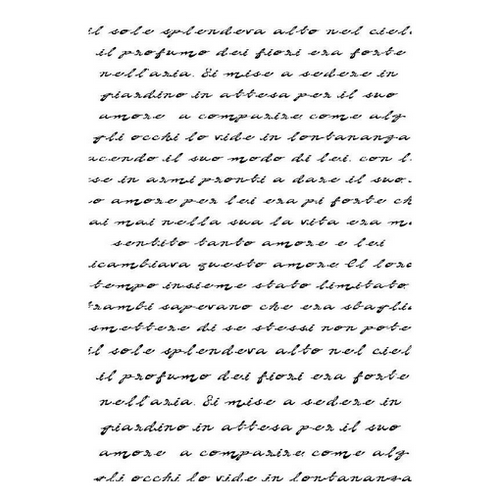 il sole splendeva alto nel ciel
il profumo dei fiori era forte
nell'aria. Si mise a sedere in
giardino in attesa per il suo
amore a comparire come alg
gli occhi lo vide in lontananza
acendo il suo modo di lei. con l
se in armi pronti a dare il suo.
o amore per lei era pi forte ch
ai mai nella sua la vita era m
sentito tanto amore e lei
icambiava questo amore. Il loro
tempo insieme stato limitato.
trambi sapevano che era sbaglia
smettere di se stessi non pote
il sole splendeva alto nel ciel
il profumo dei fiori era forte
nell'aria. Si mise a sedere in
giardino in attesa per il suo
amore a comparire come alg
gli occhi lo vide in lontananza